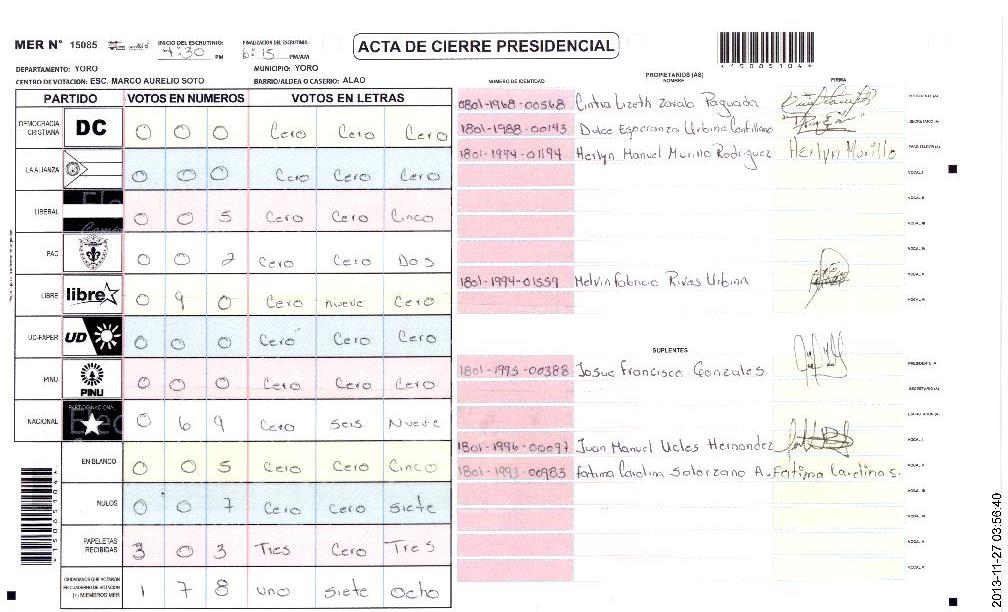 MER N° 15085
INICIO DEL ESCRUTINIO: 4:30 PM
FINALIZACIÓN DEL ESCRUTINIO: 6:15 PM/AM
ACTA DE CIERRE PRESIDENCIAL
4150851044
DEPARTAMENTO: YORO
MUNICIPIO: YORO
CENTRO DE VOTACION: ESC. MARCO AURELIO SOTO
BARRIO/ALDEA O CASERIO: ALAO
PARTIDO VOTOS EN NUMEROS VOTOS EN LETRAS
DEMOCRACIA CRISTIANA DC 0 0 0 Cero Cero Cero
LA ALIANZA 0 0 0 Cero Cero Cero
LIBERAL 0 0 5 Cero Cero Cinco
PAC 0 0 2 Cero Cero Dos
LIBRE libre 0 9 0 Cero nueve Cero
UD-FAPER UD 0 0 0 Cero Cero Cero
PINU PINU 0 0 0 Cero Cero Cero
NACIONAL PARTIDO NACIONAL 0 6 9 Cero Seis Nueve
EN BLANCO 0 0 5 Cero Cero Cinco
NULOS 0 0 7 Cero Cero Siete
PAPELETAS RECIBIDAS 3 0 3 Tres Cero Tres
CIUDADANOS QUE VOTARON EN CUADERNO DE VOTACION (+) MIEMBROS MER 1 7 8 uno Siete Ocho
PROPIETARIOS (AS)
NUMERO DE IDENTIDAD NOMBRE FIRMA
0801-1968-00568 Cintia Lizeth Zavala Paguada PRESIDENTE (A)
1801-1988-00193 Dulce Esperanza Urbina SECRETARIO (A)
1801-1994-01594 Herlyn Manuel Murillo Rodriguez Herlyn Murillo ESCRUTADOR (A)
VOCAL I
VOCAL II
VOCAL III
VOCAL IV
1801-1994-01559 Melvin fabricio Rivas Urbina VOCAL V
VOCAL VI
SUPLENTES
1801-1995-00388 Josue Francisco Gonzales PRESIDENTE (A)
SECRETARIO (A)
ESCRUTADOR (A)
1801-1996-00097 Juan Manuel Ucles Hernandez VOCAL I
1801-1993-00983 fatima Carolina Solorzano A. Fatima Carolina S. VOCAL II
VOCAL III
VOCAL IV
VOCAL V
VOCAL VI
4150851044
2013-11-27 03:56:40